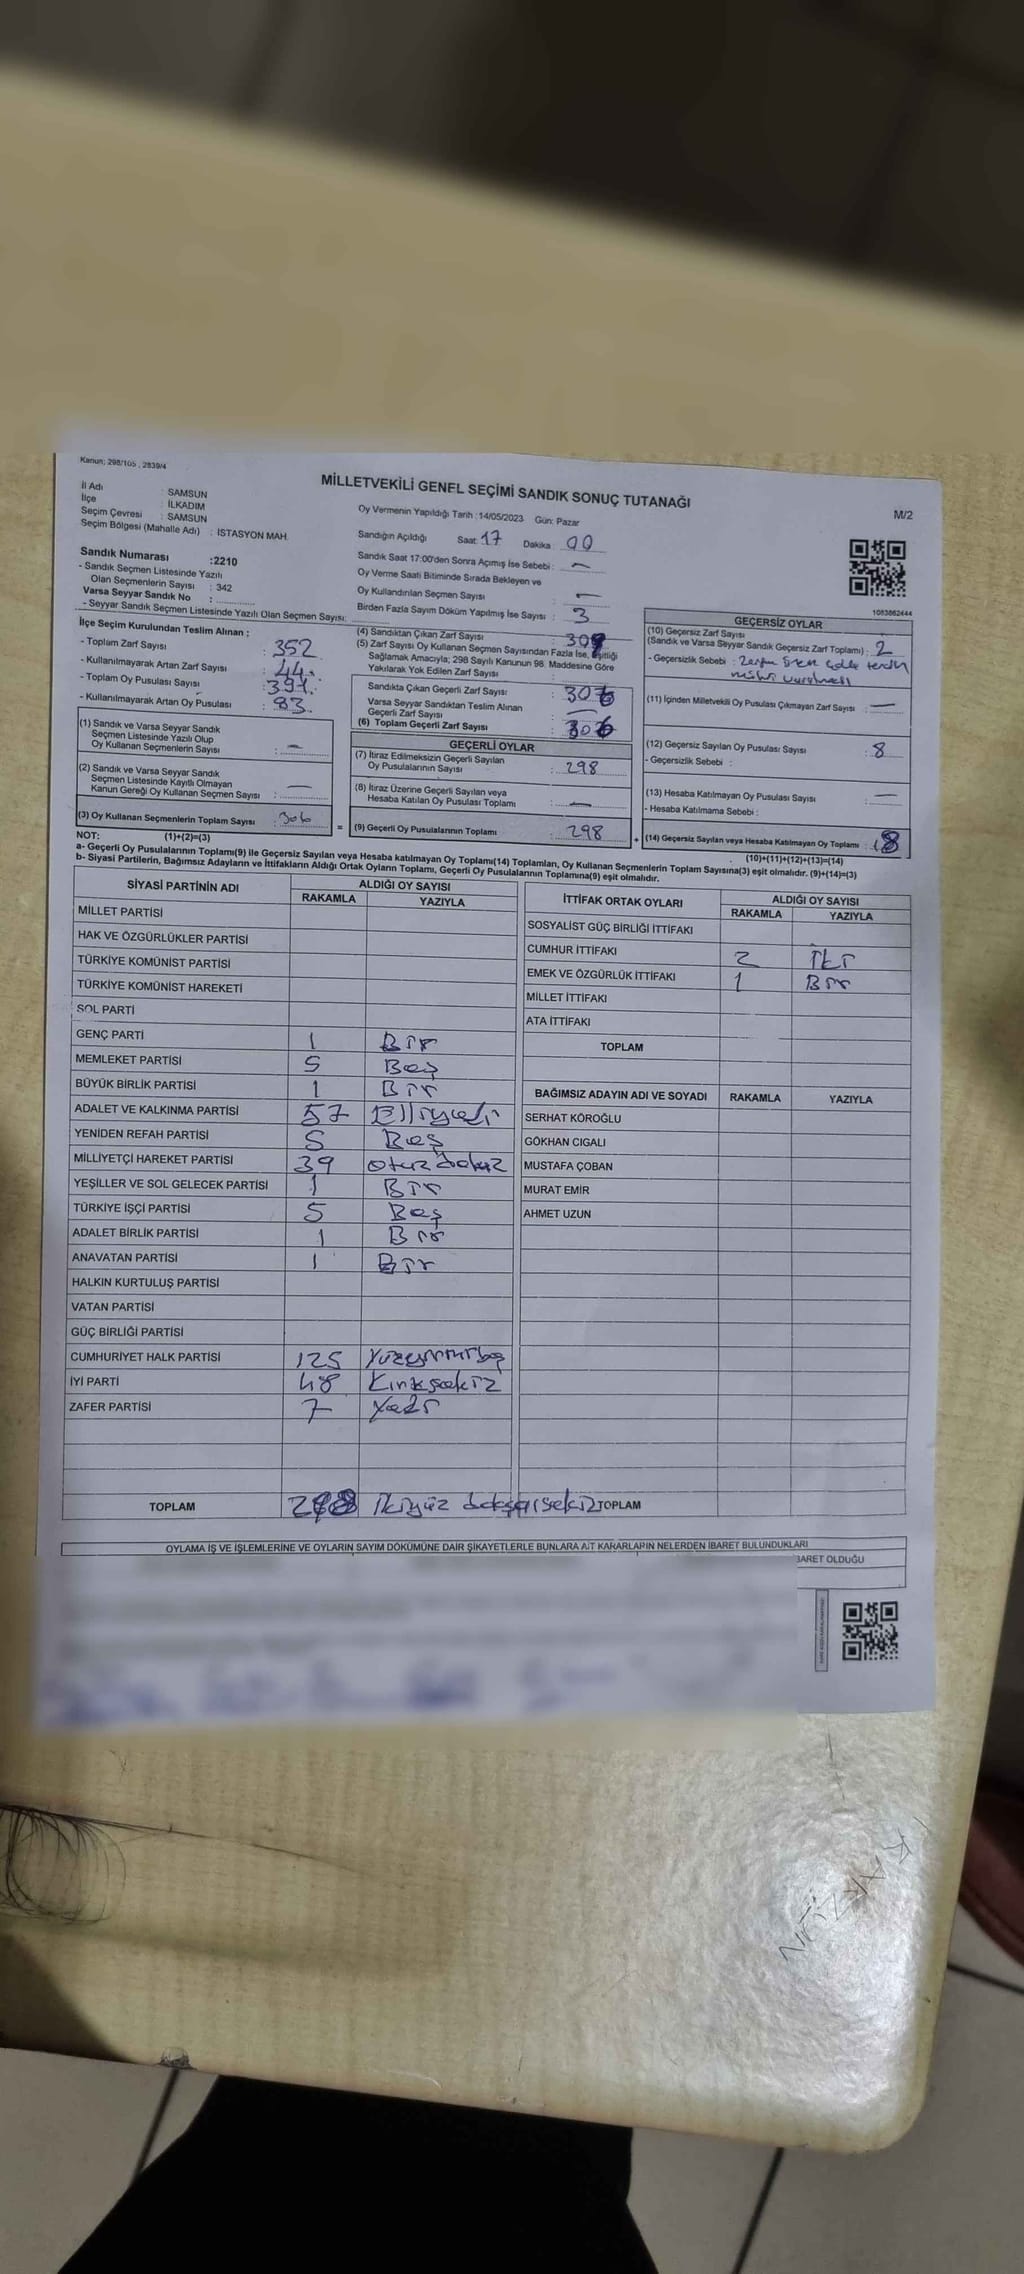 Kanun: 298/105 , 2839/4
MİLLETVEKİLİ GENEL SEÇİMİ SANDIK SONUÇ TUTANAĞI
M/2
İl Adı : SAMSUN
İlçe : İLKADIM
Seçim Çevresi : SAMSUN
Seçim Bölgesi (Mahalle Adı) : İSTASYON MAH.
Oy Vermenin Yapıldığı Tarih :14/05/2023 Gün: Pazar
Sandığın Açıldığı Saat: 17 Dakika : 00
Sandık Saat 17:00'den Sonra Açımış İse Sebebi : —
Oy Verme Saati Bitiminde Sırada Bekleyen ve
Oy Kullandırılan Seçmen Sayısı : —
Birden Fazla Sayım Döküm Yapılmış İse Sayısı : 3
Sandık Numarası :2210
- Sandık Seçmen Listesinde Yazılı
Olan Seçmenlerin Sayısı : 342
Varsa Seyyar Sandık No :
- Seyyar Sandık Seçmen Listesinde Yazılı Olan Seçmen Sayısı:
1083862444
İlçe Seçim Kurulundan Teslim Alınan :
- Toplam Zarf Sayısı : 352
- Kullanılmayarak Artan Zarf Sayısı : 44
- Toplam Oy Pusulası Sayısı : 391
- Kullanılmayarak Artan Oy Pusulası : 83
(1) Sandık ve Varsa Seyyar Sandık
Seçmen Listesinde Yazılı Olup
Oy Kullanan Seçmenlerin Sayısı : —
(2) Sandık ve Varsa Seyyar Sandık
Seçmen Listesinde Kayıtlı Olmayan
Kanun Gereği Oy Kullanan Seçmen Sayısı : —
(3) Oy Kullanan Seçmenlerin Toplam Sayısı : 306
(4) Sandıktan Çıkan Zarf Sayısı :
(5) Zarf Sayısı Oy Kullanan Seçmen Sayısından Fazla İse, Eşitliği
Sağlamak Amacıyla; 298 Sayılı Kanunun 98. Maddesine Göre
Yakılarak Yok Edilen Zarf Sayısı : —
Sandıkta Çıkan Geçerli Zarf Sayısı : 306
Varsa Seyyar Sandıktan Teslim Alınan
Geçerli Zarf Sayısı : —
(6) Toplam Geçerli Zarf Sayısı : 306
GEÇERLİ OYLAR
(7) İtiraz Edilmeksizin Geçerli Sayılan
Oy Pusulalarının Sayısı : 298
(8) İtiraz Üzerine Geçerli Sayılan veya
Hesaba Katılan Oy Pusulası Toplamı : —
= (9) Geçerli Oy Pusulalarının Toplamı : 298 +
GEÇERSİZ OYLAR
(10) Geçersiz Zarf Sayısı
(Sandık ve Varsa Seyyar Sandık Geçersiz Zarf Toplamı) : 2
- Geçersizlik Sebebi :
(11) İçinden Milletvekili Oy Pusulası Çıkmayan Zarf Sayısı : —
(12) Geçersiz Sayılan Oy Pusulası Sayısı : 8
- Geçersizlik Sebebi :
(13) Hesaba Katılmayan Oy Pusulası Sayısı : —
- Hesaba Katılmama Sebebi :
(14) Geçersiz Sayılan veya Hesaba Katılmayan Oy Toplamı : 8
(10)+(11)+(12)+(13)=(14)
NOT: (1)+(2)=(3)
a- Geçerli Oy Pusulalarının Toplamı(9) ile Geçersiz Sayılan veya Hesaba katılmayan Oy Toplamı(14) Toplamları, Oy Kullanan Seçmenlerin Toplam Sayısına(3) eşit olmalıdır. (9)+(14)=(3)
b- Siyasi Partilerin, Bağımsız Adayların ve İttifakların Aldığı Ortak Oyların Toplamı, Geçerli Oy Pusulalarının Toplamına(9) eşit olmalıdır.
SİYASİ PARTİNİN ADI ALDIĞI OY SAYISI
RAKAMLA YAZIYLA
MİLLET PARTİSİ
HAK VE ÖZGÜRLÜKLER PARTİSİ
TÜRKİYE KOMÜNİST PARTİSİ
TÜRKİYE KOMÜNİST HAREKETİ
SOL PARTİ
GENÇ PARTİ 1 Bir
MEMLEKET PARTİSİ 5 Beş
BÜYÜK BİRLİK PARTİSİ 1 Bir
ADALET VE KALKINMA PARTİSİ 57 Elliyedi
YENİDEN REFAH PARTİSİ 5 Beş
MİLLİYETÇİ HAREKET PARTİSİ 39 otuzdokuz
YEŞİLLER VE SOL GELECEK PARTİSİ 1 Bir
TÜRKİYE İŞÇİ PARTİSİ 5 Beş
ADALET BİRLİK PARTİSİ 1 Bir
ANAVATAN PARTİSİ 1 Bir
HALKIN KURTULUŞ PARTİSİ
VATAN PARTİSİ
GÜÇ BİRLİĞİ PARTİSİ
CUMHURİYET HALK PARTİSİ 125 Yüzyirmibeş
İYİ PARTİ 48 Kırksekiz
ZAFER PARTİSİ 7 Yedi
TOPLAM 298 ikiyüz doksansekiz
İTTİFAK ORTAK OYLARI ALDIĞI OY SAYISI
RAKAMLA YAZIYLA
SOSYALİST GÜÇ BİRLİĞİ İTTİFAKI
CUMHUR İTTİFAKI 2 İki
EMEK VE ÖZGÜRLÜK İTTİFAKI 1 Bir
MİLLET İTTİFAKI
ATA İTTİFAKI
TOPLAM
BAĞIMSIZ ADAYIN ADI VE SOYADI RAKAMLA YAZIYLA
SERHAT KÖROĞLU
GÖKHAN CIGALI
MUSTAFA ÇOBAN
MURAT EMİR
AHMET UZUN
TOPLAM
OYLAMA İŞ VE İŞLEMLERİNE VE OYLARIN SAYIM DÖKÜMÜNE DAİR ŞİKAYETLERLE BUNLARA AİT KARARLARIN NELERDEN İBARET BULUNDUKLARI
BARET OLDUĞU